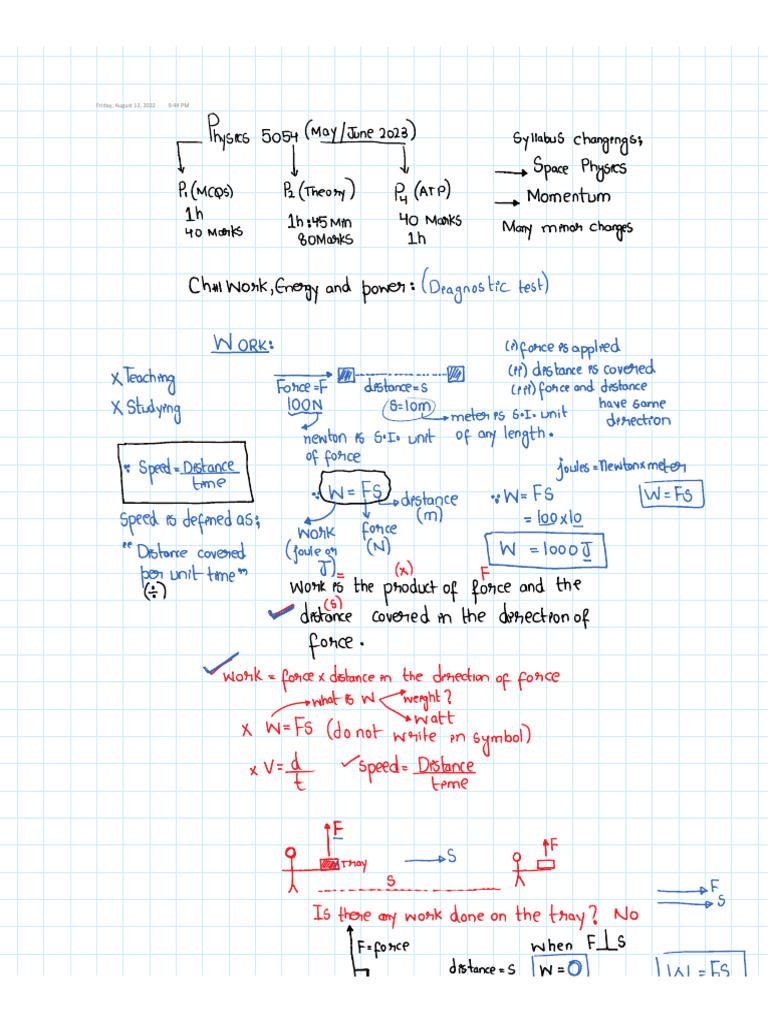 Friday, August 12, 2022 5:44 PM
Physics 5054 (May/June 2023)
P1 (MCQs)
1h
40 Marks
P2 (Theory)
1h:45 Min
80Marks
P4 (ATP)
40 Marks
1h
Syllabus changings;
→ Space Physics
→ Momentum
Many minor changes
Ch#1 Work, Energy and power: (Diagnostic test)
WORK:
x Teaching
x Studying
Force=F
100N
distance=s
S=10m
newton is S.I. unit
of force
meter is S.I. unit
of any length.
(i) force is applied
(ii) distance is covered
(iii) force and distance
have same
direction
∵ Speed = Distance
time
Speed is defined as;
"Distance covered
per unit time"
(÷)
∵ W = FS
distance
(m)
force
(N)
work
(joule or
J)
joules = Newton x meter
∵ W = FS
= 100 x 10
W = 1000 J
W = FS
= (x) F
Work is the product of force and the
(s)
distance covered in the direction of
force.
work = force x distance in the direction of force
what is W weight?
watt
x W = FS (do not write in symbol)
x V = d
t
✓ Speed = Distance
time
F
Tray
→ S
S
F
F
S
Is there any work done on the tray? No
F = force
distance = S
when F⊥S
W = 0
W = FS